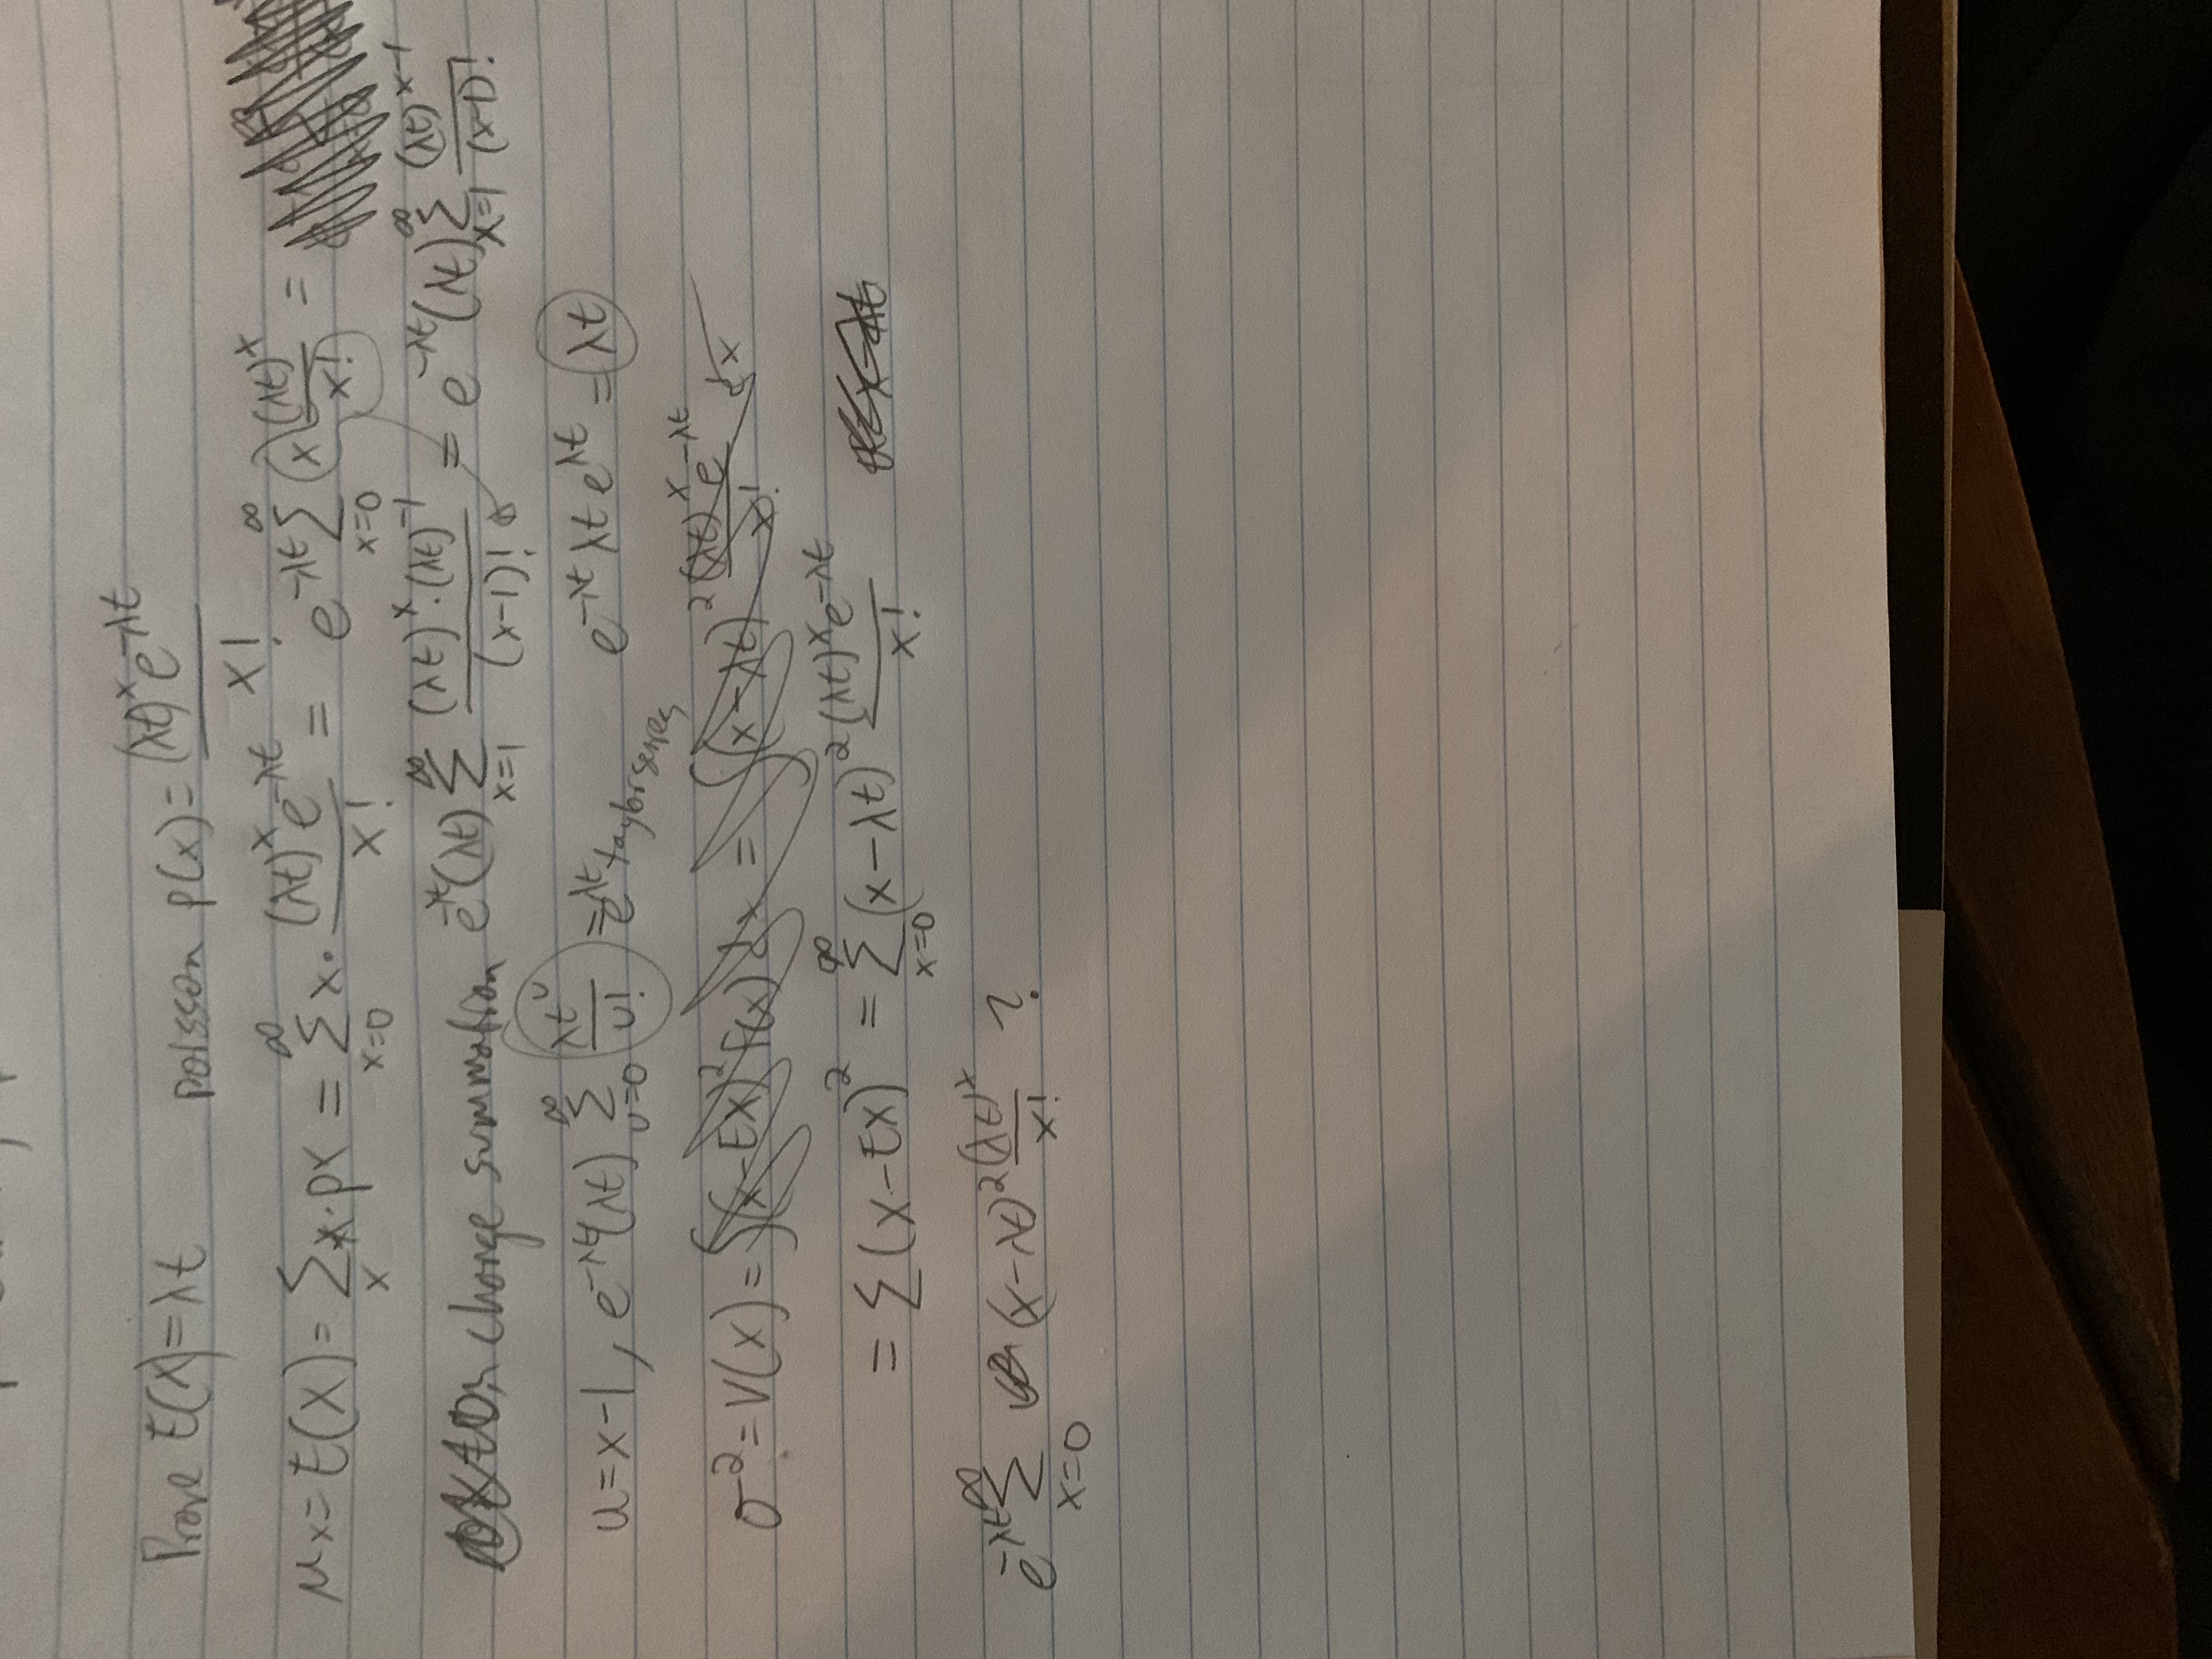 Prove E(X)=λt poisson p(x)= (λt)^x e^-λt / x!
μx = E(X) = Σ_x x·px = Σ_{x=0}^∞ x· (λt)^x e^-λt / x! = e^-λt Σ_{x=0}^∞ x (λt)^x / x! =
change summation e^-λt (λt) Σ_{x=1}^∞ (λt)^x·(λt)^-1 / (x-1)! = e^-λt (λt) Σ_{x=1}^∞ (λt)^x-1 / (x-1)!
u=x-1, e^-λt (λt) Σ_{u=0}^∞ λt^u / u! = e^λt taylor series e^-λt λt e^λt = λt
σ² = V(X) = ∫(x-EX)² f(x) dx = ∫(x-λt)² (λt)^x e^-λt / x! dx
= Σ(x-EX)² = Σ_{x=0}^∞ (x-λt)² (λt)^x e^-λt / x!
e^-λt Σ_{x=0}^∞ (x-λt)² (λt)^x / x! ?